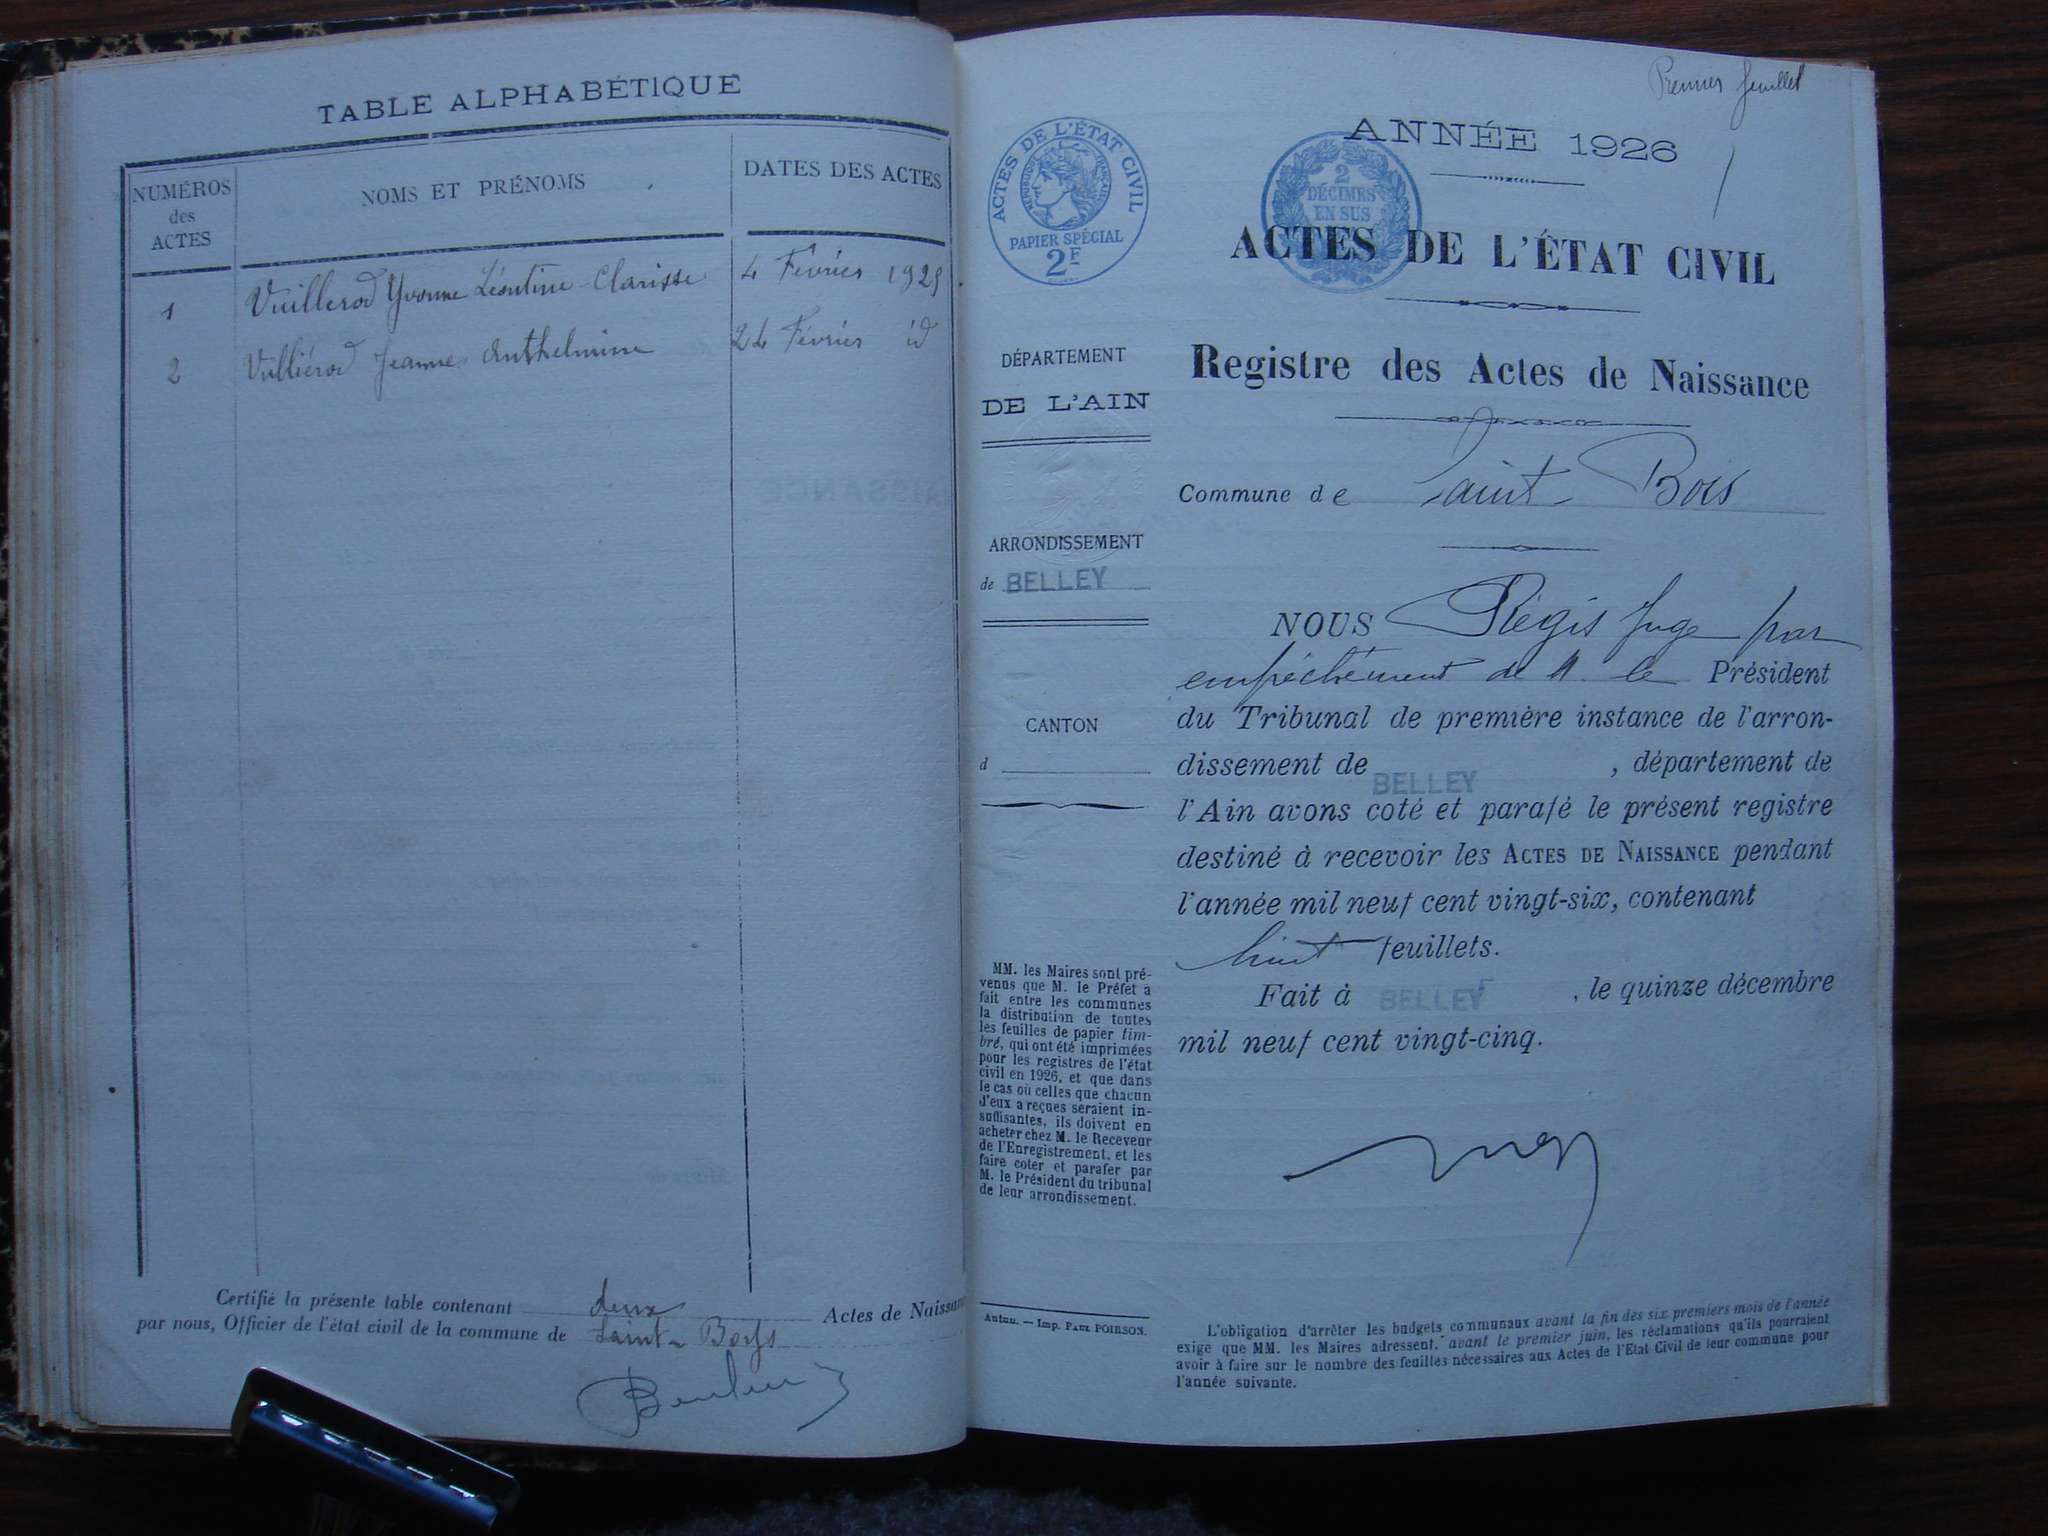 TABLE ALPHABÉTIQUE
NUMÉROS
des
ACTES
NOMS ET PRÉNOMS
DATES DES ACTES
1 Vuillerod Yvonne Léontine Clarisse 4 Février 1925
2 Vulliérod Jeanne Anthelmine 24 Février id
Certifié la présente table contenant deux Actes de Naissan
par nous, Officier de l'état civil de la commune de Saint-Boys
Premier feuillet
1
ANNÉE 1926
ACTES DE L'ÉTAT CIVIL
RÉPUBLIQUE FRANÇAISE
PAPIER SPÉCIAL
2F
2
DÉCIMES
EN SUS
ACTES DE L'ÉTAT CIVIL
Registre des Actes de Naissance
Commune de Saint Bois
DÉPARTEMENT
DE L'AIN
ARRONDISSEMENT
de BELLEY
CANTON
d
MM. les Maires sont pré-
venus que M. le Préfet a
fait entre les communes
la distribution de toutes
les feuilles de papier tim-
bré, qui ont été imprimées
pour les registres de l'état
civil en 1926, et que dans
le cas où celles que chacun
d'eux a reçues seraient in-
suffisantes, ils doivent en
acheter chez M. le Receveur
de l'Enregistrement, et les
faire coter et parafer par
M. le Président du tribunal
de leur arrondissement.
Autun. — Imp. PAUL POIRSON.
NOUS Régis Juge par
empéchément de M. le Président
du Tribunal de première instance de l'arron-
dissement de BELLEY, département de
l'Ain avons coté et parafé le présent registre
destiné à recevoir les ACTES DE NAISSANCE pendant
l'année mil neuf cent vingt-six, contenant
huit feuillets.
Fait à BELLEY, le quinze décembre
mil neuf cent vingt-cinq.
L'obligation d'arrêter les budgets communaux avant la fin des six premiers mois de l'année
exige que MM. les Maires adressent, avant le premier juin, les réclamations qu'ils pourraient
avoir à faire sur le nombre des feuilles nécessaires aux Actes de l'Etat Civil de leur commune pour
l'année suivante.